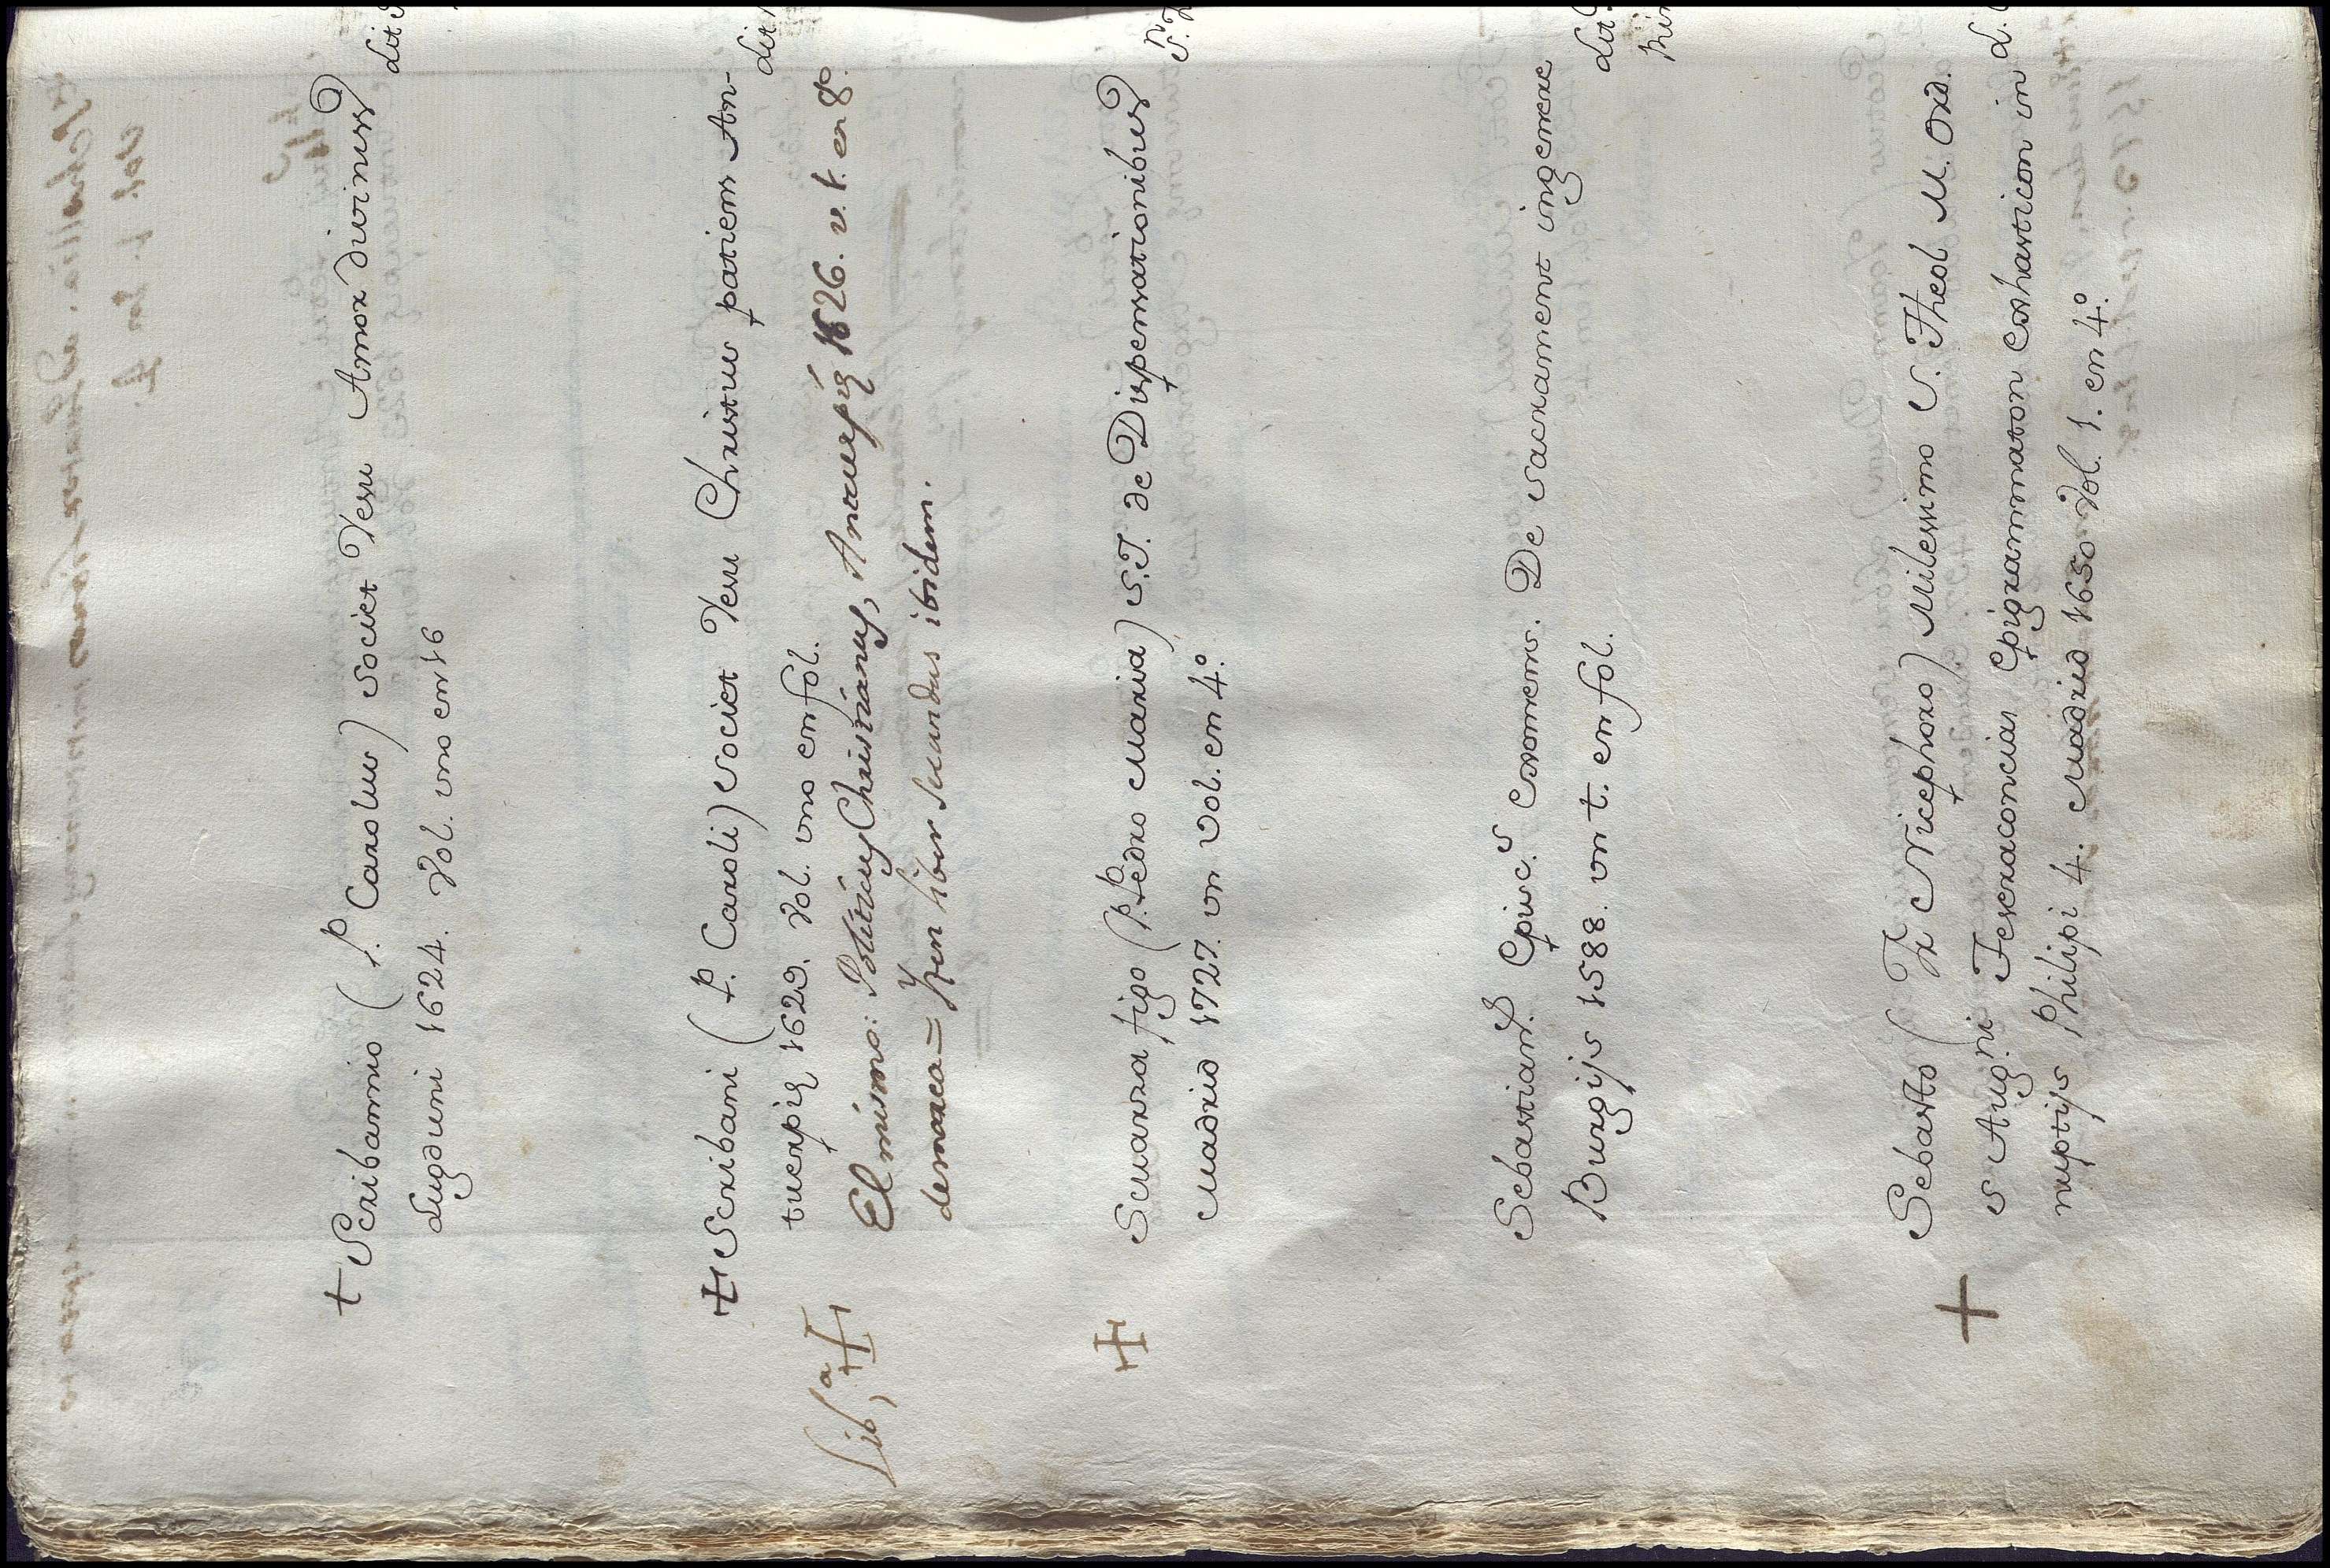 + Scribanio (P. Carolus) societ Jesu Amor divinus
Lugduni 1624. Vol. uno en 16
+ Scribani (P. Caroli) societ Jesu Christus patiens An-
tuerpiæ 1629. Vol. uno en fol.
El mismo: Politicus Christianus, Antuerpiæ 1626. v. 1. en 8º.
demarca = Iten liber secundus ibidem.
+
Scuarza figo (P. Pedro Maria) S.J. de Dispensationibus
Madrid 1727. un Vol. en 4º
Sebastian. Episc. Oxomens. De sacrament ingenere
Burgijs 1588. un t. en fol.
+ Sebasto (Fr Nicephoro) Milessino S. Theol M. Ord.
S Aug.ni Epigrammaton eshasticon in
nuptijs Philipi 4. Madrid 1650 Vol. 1. en 4º